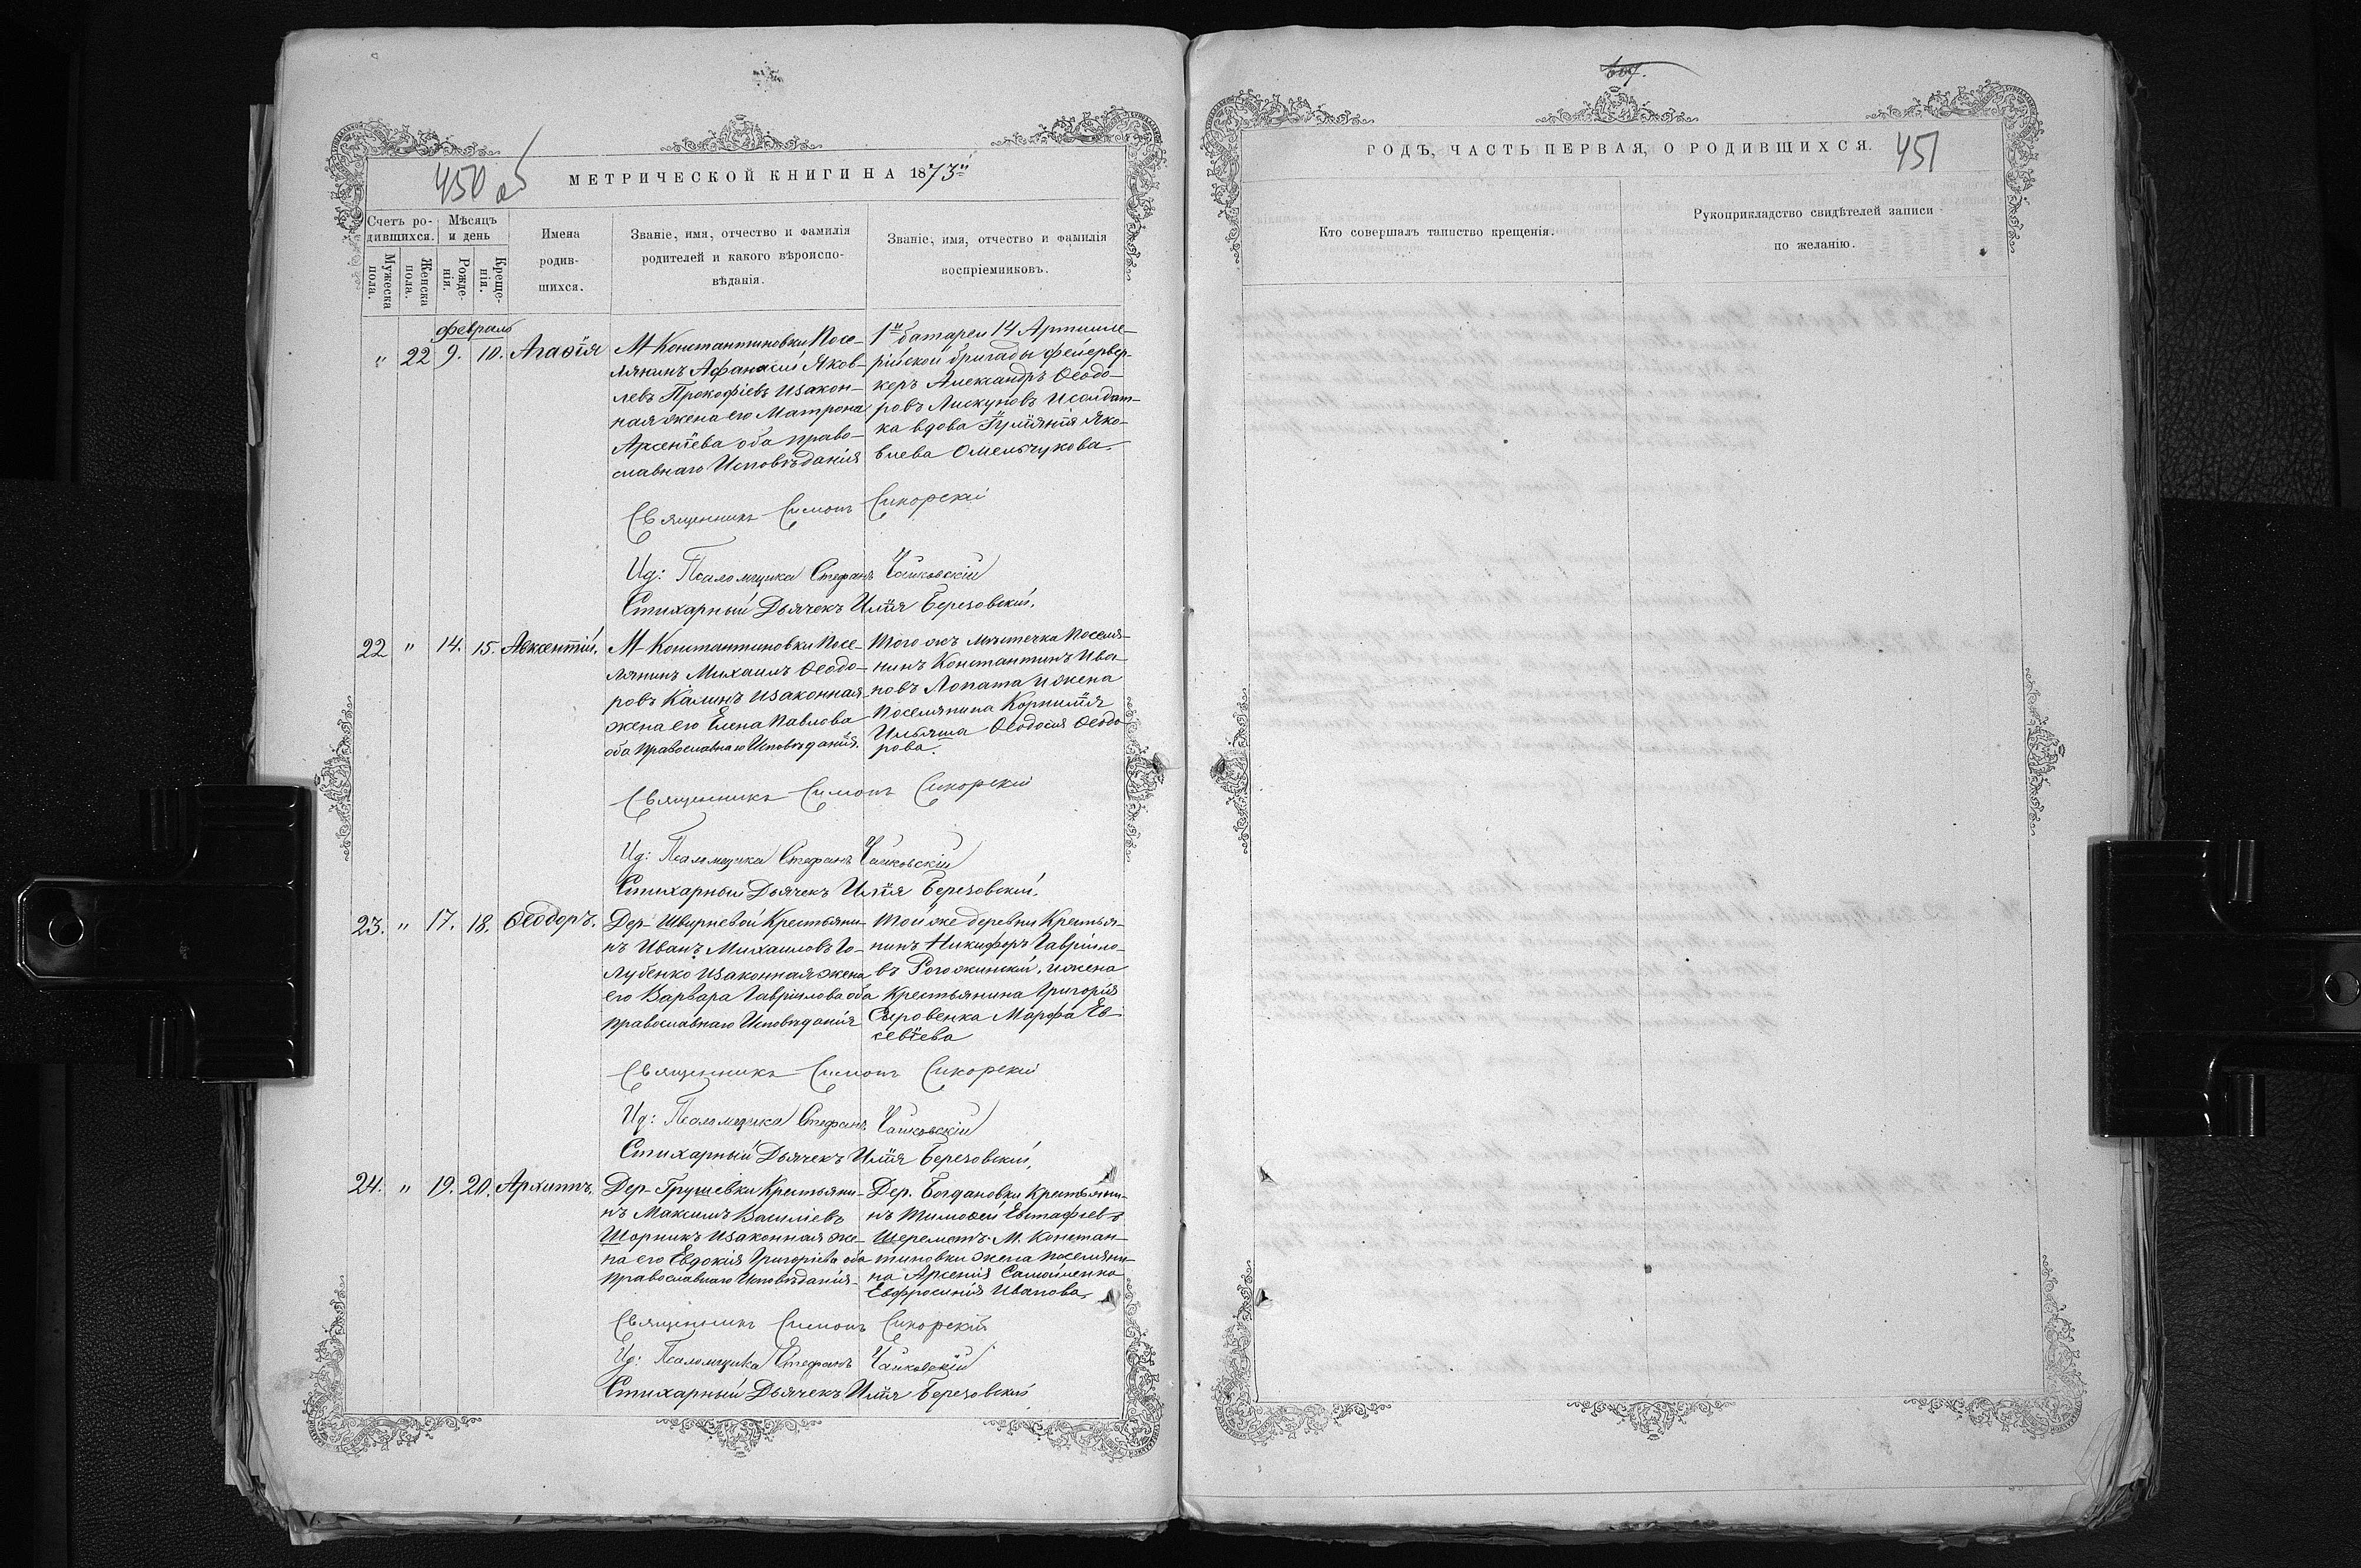 450 об
МЕТРИЧЕСКОЙ КНИГИ НА 1873й
Счетъ ро-
дившихся.
Мужеска пола.
Женска пола.
Мѣсяцъ
и день
Рожде-
нія.
Креще-
нія.
Имена
родив-
шихся.
Званіе, имя, отчество и фамилія
родителей и какого вѣроиспо-
вѣданія.
Званіе, имя, отчество и фамилія
воспріемниковъ.
февраль
" 22 9. 10. Агаѳія
М Константиновки Посе-
лянинъ Афанасій Яков-
левъ Прокофіевъ изакон-
ная жена его Матрона
Арсентіева оба право-
славнаго Исповѣданія
1й батареи 14 Артилле-
рійской бригады фейервер-
керъ Александръ Ѳеодо-
ровъ Пискуновъ И солдат-
ка вдова Іуліянія Яко-
влева Омельчукова.
Священникъ Симонъ Сикорскій
Ид: Псаломщика Стефанъ Чайковскій
Стихарный Дьячекъ Илія Березовскій.
22 " 14. 15. Авксентій.
М Константиновки Посе-
лянинъ Михаилъ Ѳеодо-
ровъ Калинъ изаконная
жена его Елена Павлова
оба православнаго Исповѣданія.
Того жъ мѣстечка Поселя-
нинъ Константинъ Ива-
новъ Лопата и жена
Поселянина Корнилія
Ильяша Ѳеодосія Ѳеодо
рова.
Священникъ Симонъ Сикорскій
Ид: Псаломщика Стефанъ Чайковскій
Стихарный Дьячекъ Илія Березовскій.
23. " 17. 18. Ѳеодоръ.
Дер- Швырневой Крестьяни-
нъ Иванъ Михаиловъ Го-
лубенко изаконная жена
его Варвара Гавріилова оба
православнаго Исповѣданія
Той же деревни Крестья-
нинъ Никифоръ Гавріило-
въ Рогожинскій, и жена
Крестьянина Григорія
Сыровенка Марфа Ев-
севіева
Священникъ Симонъ Сикорскій
Ид: Псаломщика Стефанъ Чайковскій
Стихарный Дьячекъ Илія Березовскій.
24. " 19. 20. Архиппъ.
Дер- Грушевки Крестьяни-
нъ Максимъ Василіевъ
Шорникъ изаконная же-
на его Евдокія Григоріева оба
православнаго Исповѣданія-
Дер. Богдановки Крестьяни-
нъ Тимоѳей Евстафіевъ
Шереметъ. М. Констан-
тиновки жена поселяни-
на Арсенія Самойленка
Евфросинія Иванова,
Священникъ Симонъ Сикорскій
Ид: Псаломщика Стефанъ Чайковскій
Стихарный Дьячекъ Илія Березовскій
451
ГОДЪ, ЧАСТЬ ПЕРВАЯ, О РОДИВШИХСЯ.
Кто совершалъ таинство крещенія.
Рукоприкладство свидѣтелей записи
по желанію.